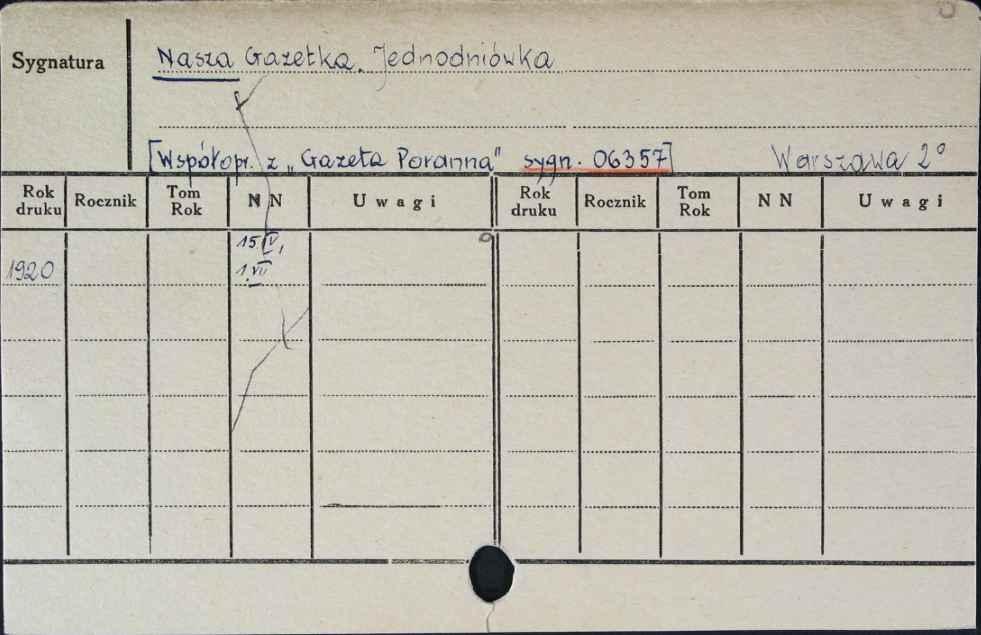 Sygnatura
Nasza Gazetka. Jednodniówka
[Współopr. z „Gazeta Poranna" sygn. 06357]
Warszawa 2°
Rok druku Rocznik Tom Rok N N Uwagi Rok druku Rocznik Tom Rok N N Uwagi
15.IV,
1920 1.VII